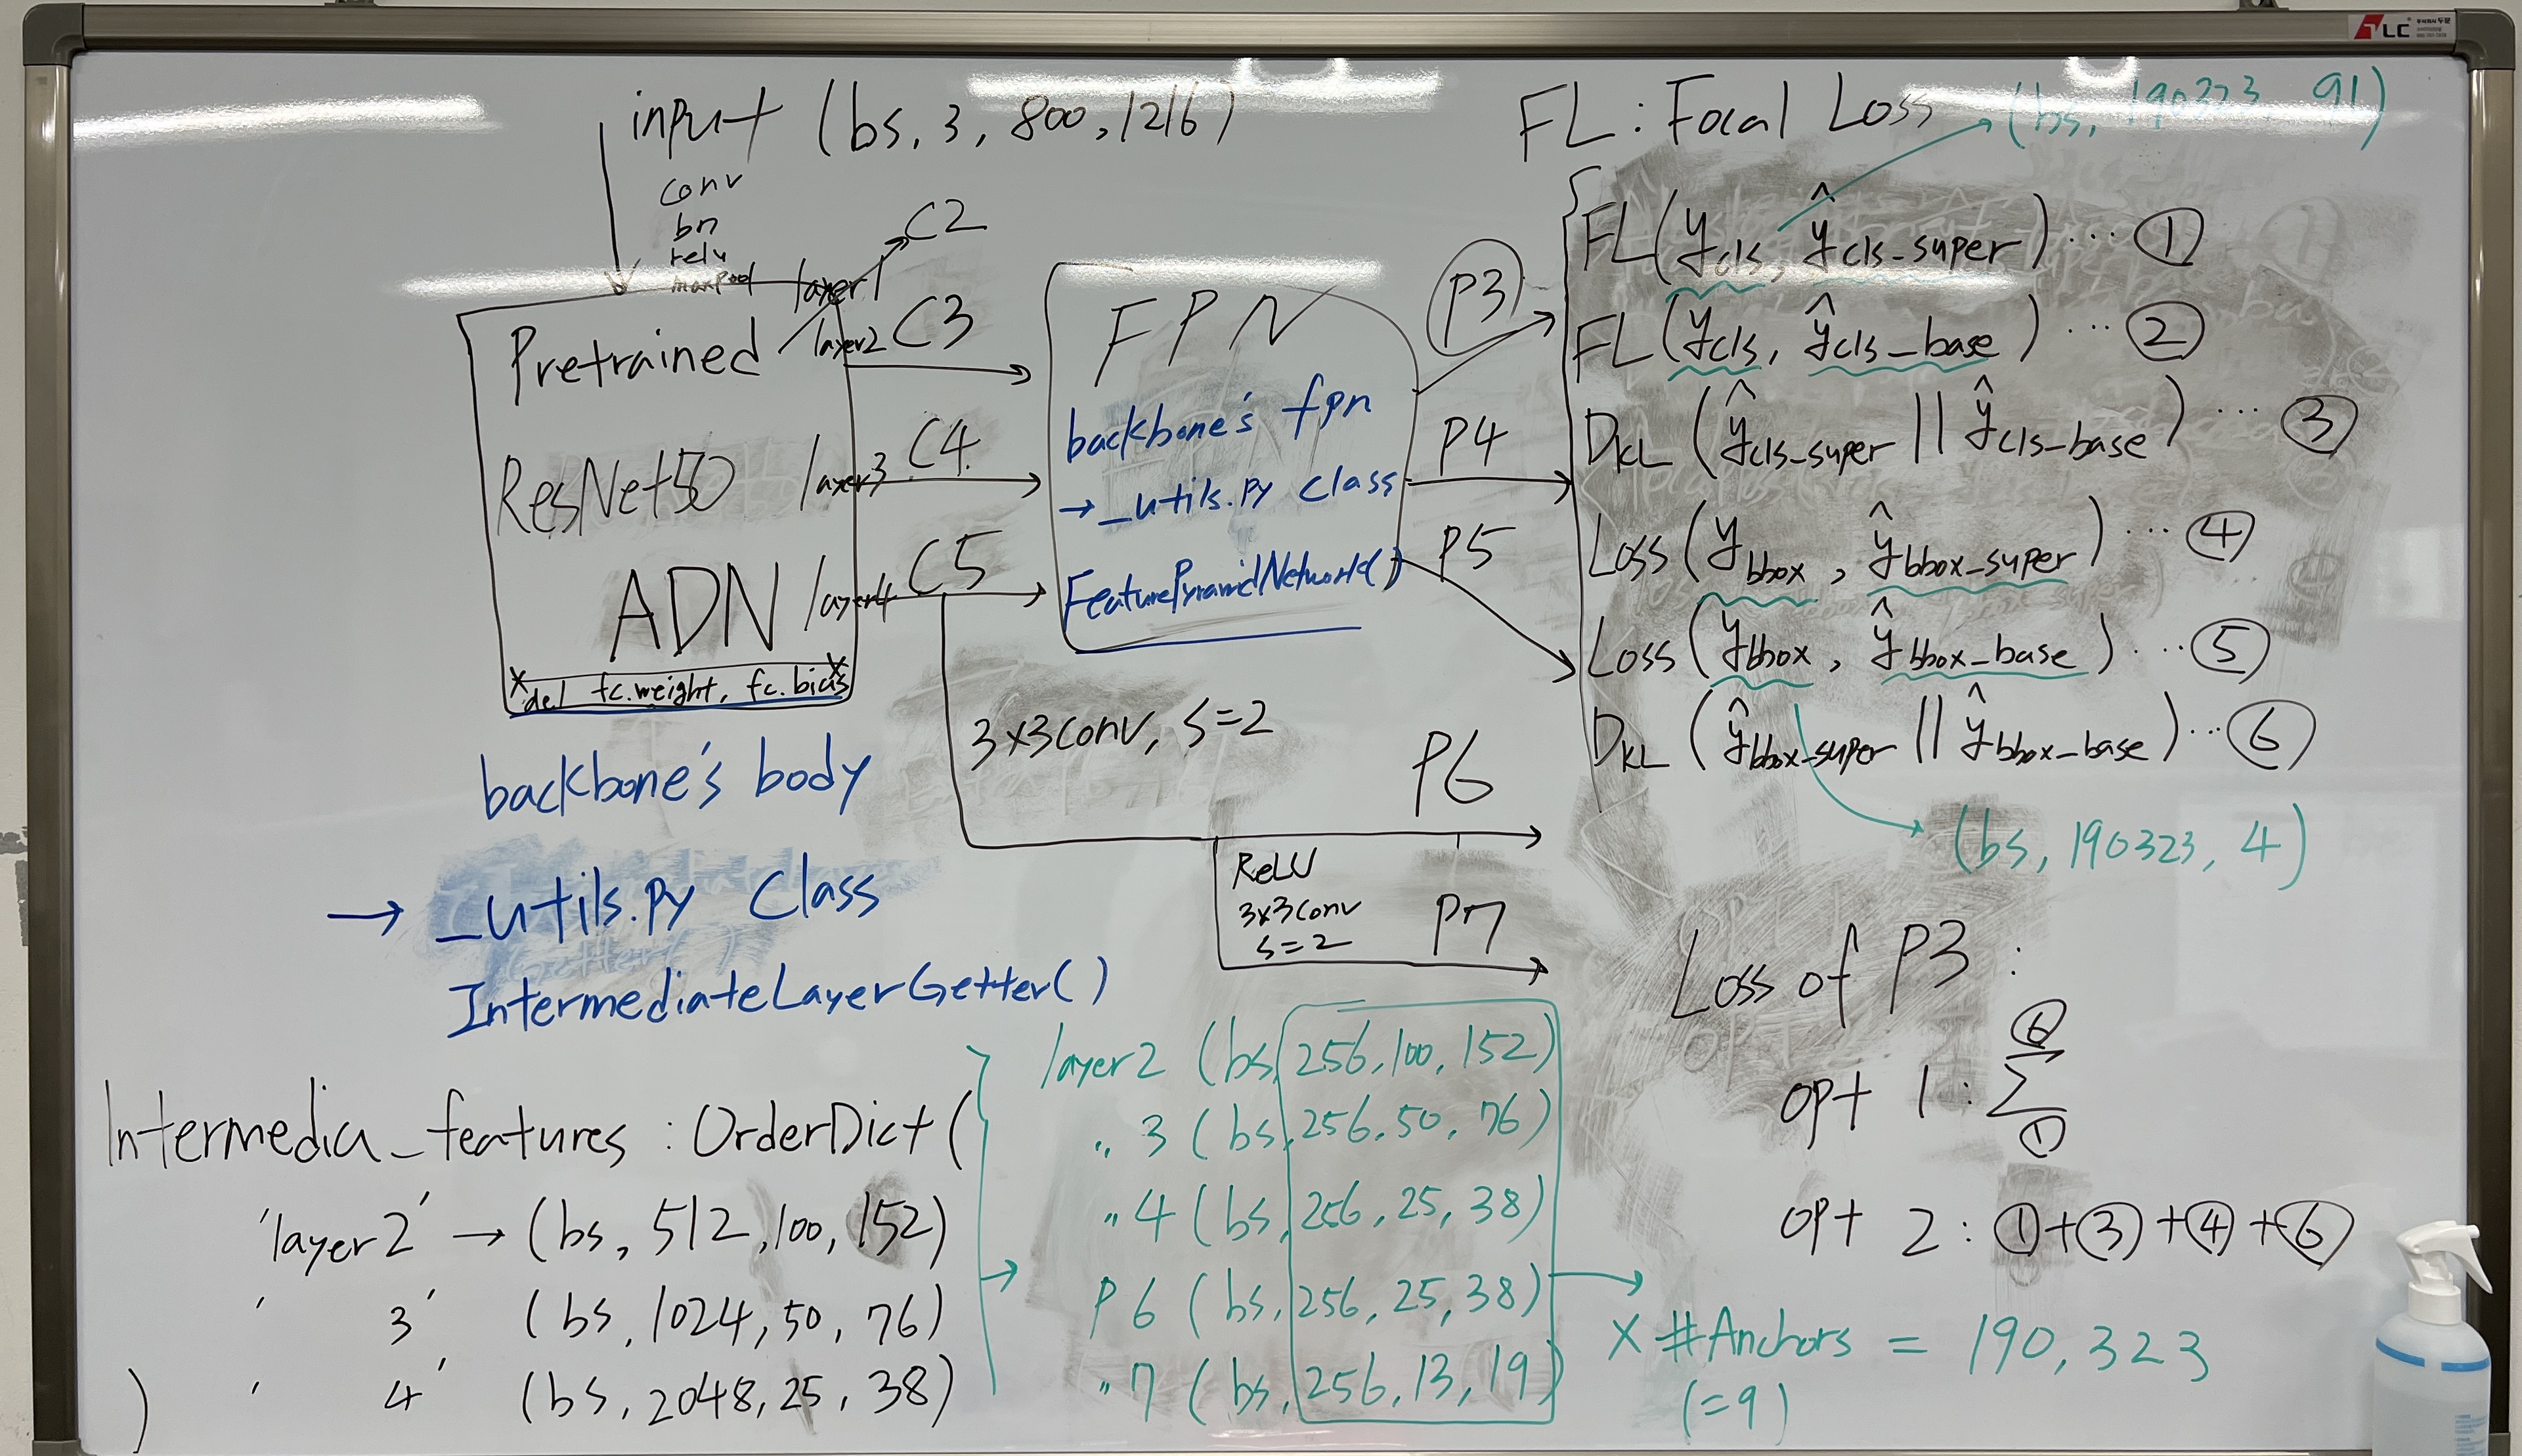 LC
input (bs, 3, 800, 1216)
conv
bn
relu
maxpool
layer1
C2
Pretrained
ResNet50
ADN
layer2 C3
layer3 C4
layer4 C5
del fc.weight, fc.bias
backbone's body
→ _utils.py Class
IntermediateLayerGetter()
FPN
backbone's fpn
→ _utils.py class
FeaturePyramidNetwork()
P3
P4
P5
3x3conv, s=2
P6
ReLU
3x3conv
s=2
P7
FL : Focal Loss
(bs, 190323, 91)
FL(y_cls, ŷ_cls-super) ... ①
FL(y_cls, ŷ_cls_base) ... ②
D_KL (ŷ_cls-super || ŷ_cls-base) ... ③
Loss(y_bbox, ŷ_bbox-super) ... ④
Loss(y_bbox, ŷ_bbox-base) ... ⑤
D_KL (ŷ_bbox-super || ŷ_bbox-base) ... ⑥
(bs, 190323, 4)
Loss of P3 :
opt 1 : ⑥ Σ ①
opt 2 : ①+③+④+⑥
Intermedia_features : OrderDict(
'layer2' → (bs, 512, 100, 152)
' 3' (bs, 1024, 50, 76)
' 4' (bs, 2048, 25, 38)
)
layer2 (bs, 256, 100, 152)
〃 3 (bs, 256, 50, 76)
〃 4 (bs, 256, 25, 38)
P6 (bs, 256, 25, 38)
〃 7 (bs, 256, 13, 19)
x #Anchors = 190,323
(=9)